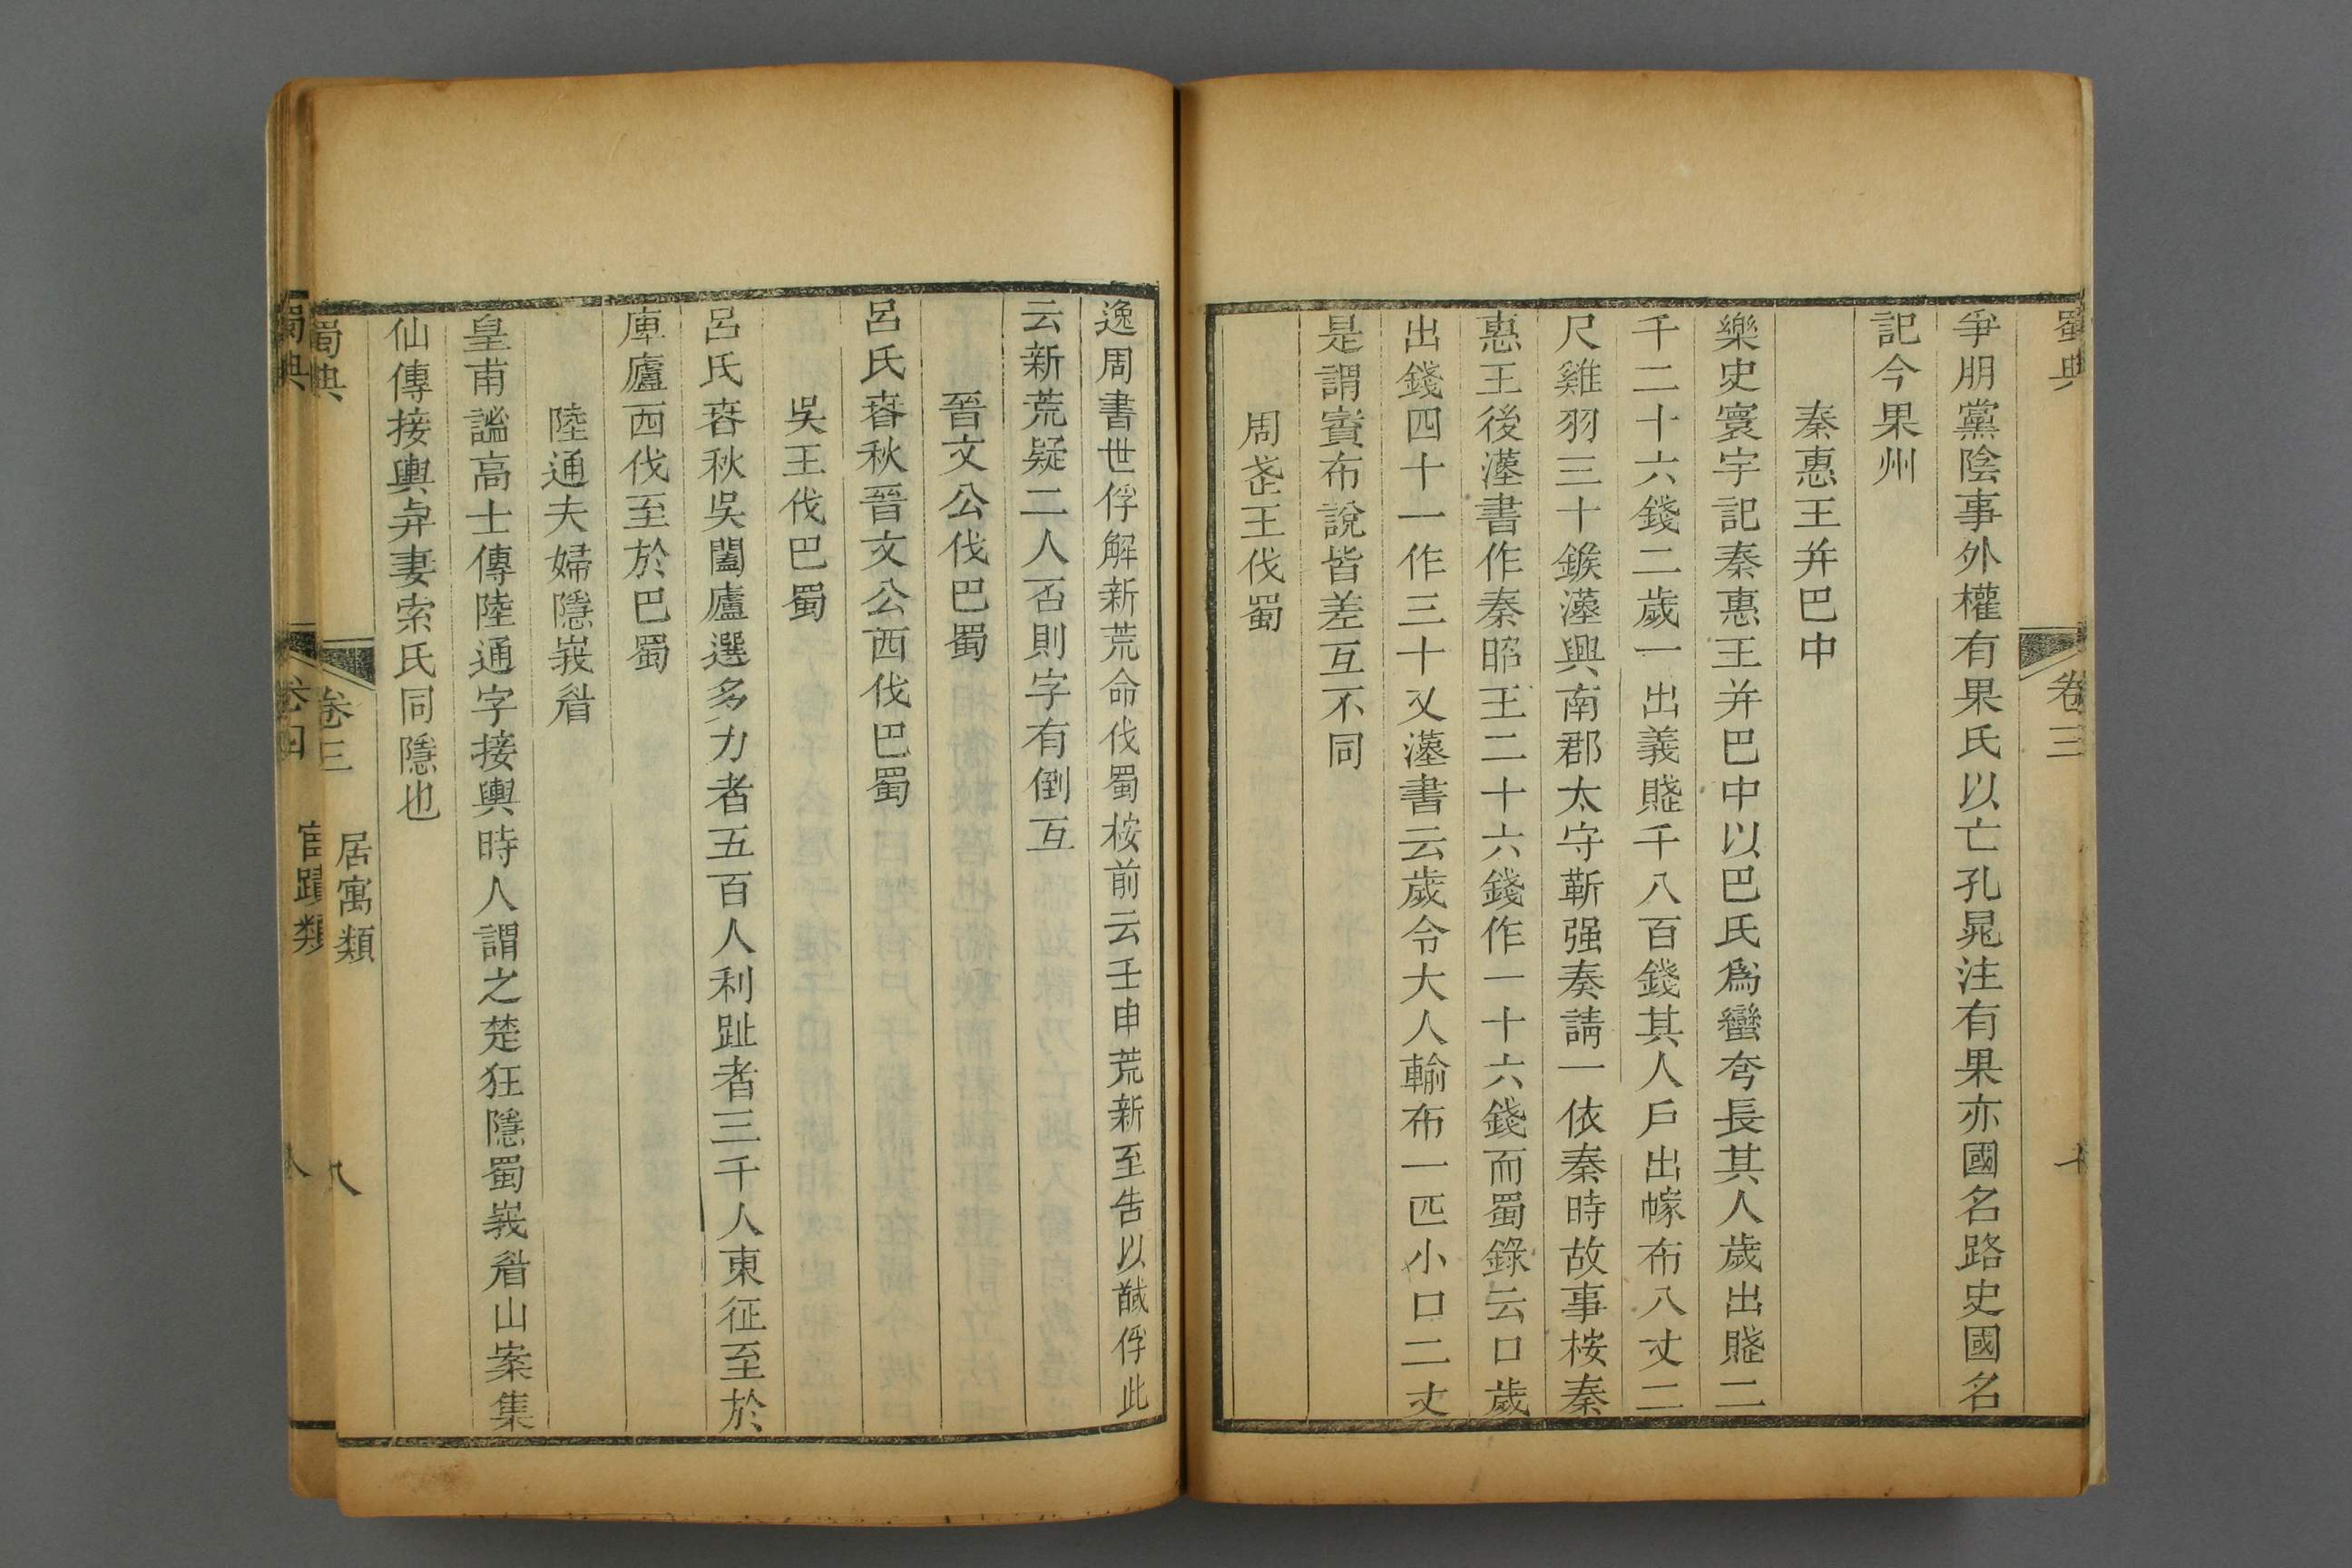 蜀典 卷三
爭朋黨陰事外權有果氏以亡孔晁注有果亦國名路史國名
記今果州
秦惠王并巴中
樂史寰宇記秦惠王并巴中以巴氏爲蠻夸長其人歲出賧二
千二十六錢二歲一出義賧千八百錢其人戶出幏布八丈二
尺雞羽三十鍭漢興南郡太守靳强奏請一依秦時故事桉秦
惠王後漢書作秦昭王二十六錢作一十六錢而蜀錄云口歲
出錢四十一作三十又漢書云歲令大人輸布一匹小口二丈
是謂賨布說皆差互不同
周武王伐蜀
逸周書世俘解新荒命伐蜀桉前云壬申荒新至告以馘俘此
云新荒疑二人否則字有倒互
晉文公伐巴蜀
呂氏春秋晉文公西伐巴蜀
吳王伐巴蜀
呂氏春秋吳闔廬選多力者五百人利趾者三千人東征至於
庳廬西伐至於巴蜀
陸通夫婦隱峩眉
皇甫謐高士傳陸通字接輿時人謂之楚狂隱蜀峩眉山案集
仙傳接輿與妻索氏同隱也
蜀典 卷三 居寓類 八
蜀典 卷四 宦蹟類